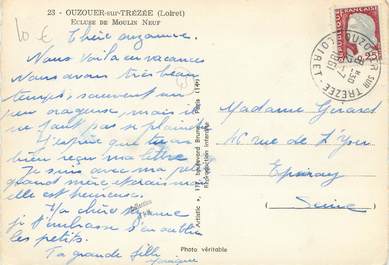 23 - OUZOUER-sur-TRÉZÉE (Loiret)
ÉCLUSE DE MOULIN NEUF
10 €
Chère
Nous voilà en vacances
Nous avons très beau
temps, souvent un
peu orageux, mais il
ne faut pas se plaindre
J'espère que tu as
bien reçu ma lettre
Je suis avec ma
grand mère et
elle est heureuse
Ma chère
je t'embrasse sans oublier
les petits.
Ta grande fille
Artistic
Reproduction interdite
Photo véritable
RÉPUBLIQUE FRANÇAISE
OUZOUER SUR TRÉZÉE
LOIRET
Madame Gérard
46 rue de
Epinay
Seine